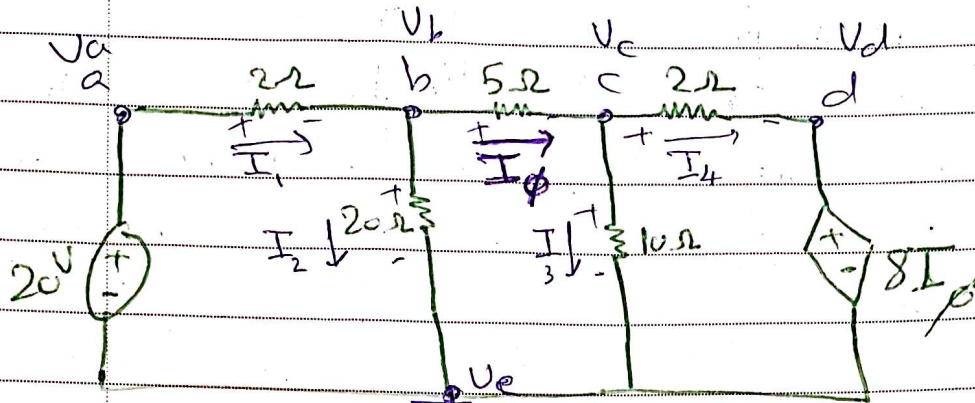 Va Vb Vc Vd
a 2Ω b 5Ω c 2Ω d
+ - + + -
I₁ Iϕ I₄
+ +
20V + - I₂ 20Ω - I₃ 10Ω - + - 8Iϕ
Ve